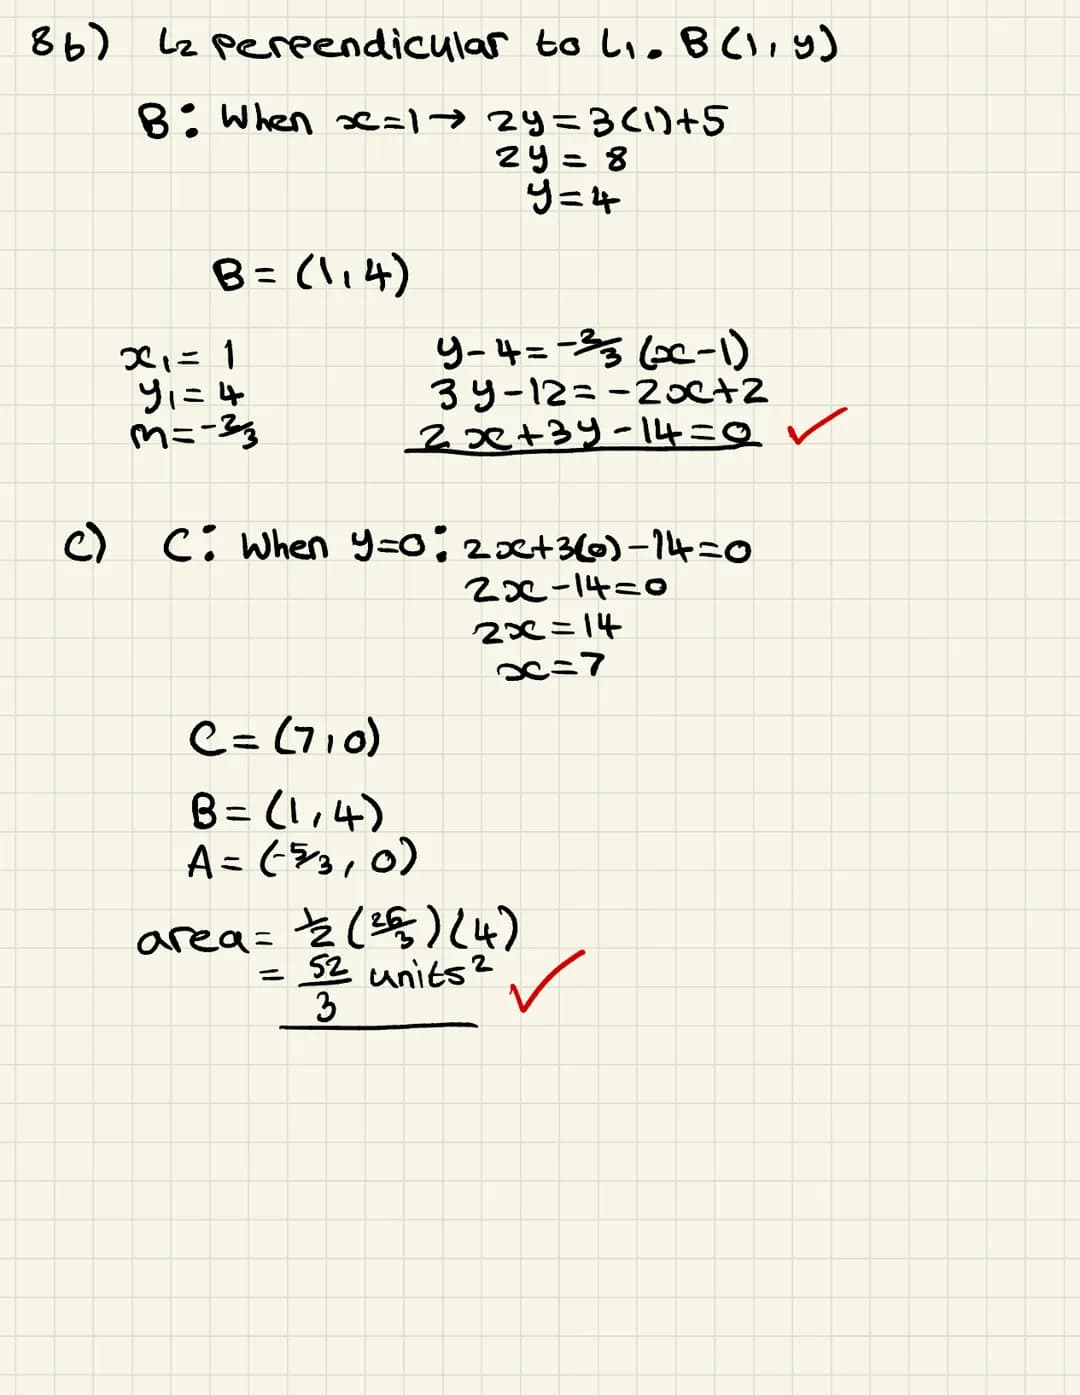 8b) L₂ perpendicular to L₁. B(1, y)
B: When x=1 → 2y=3(1)+5
2y = 8
y=4
B = (1, 4)
x₁ = 1
y₁ = 4
m=-2/3
y-4=-2/3 (x-1)
3y-12=-2x+2
2x+3y-14=0 ✓
c) C: When y=0: 2x+3(0)-14=0
2x-14=0
2x=14
x=7
C=(7,0)
B=(1,4)
A=(-5/3, 0)
area= 1/2 (26/3)(4)
= 52/3 units² ✓